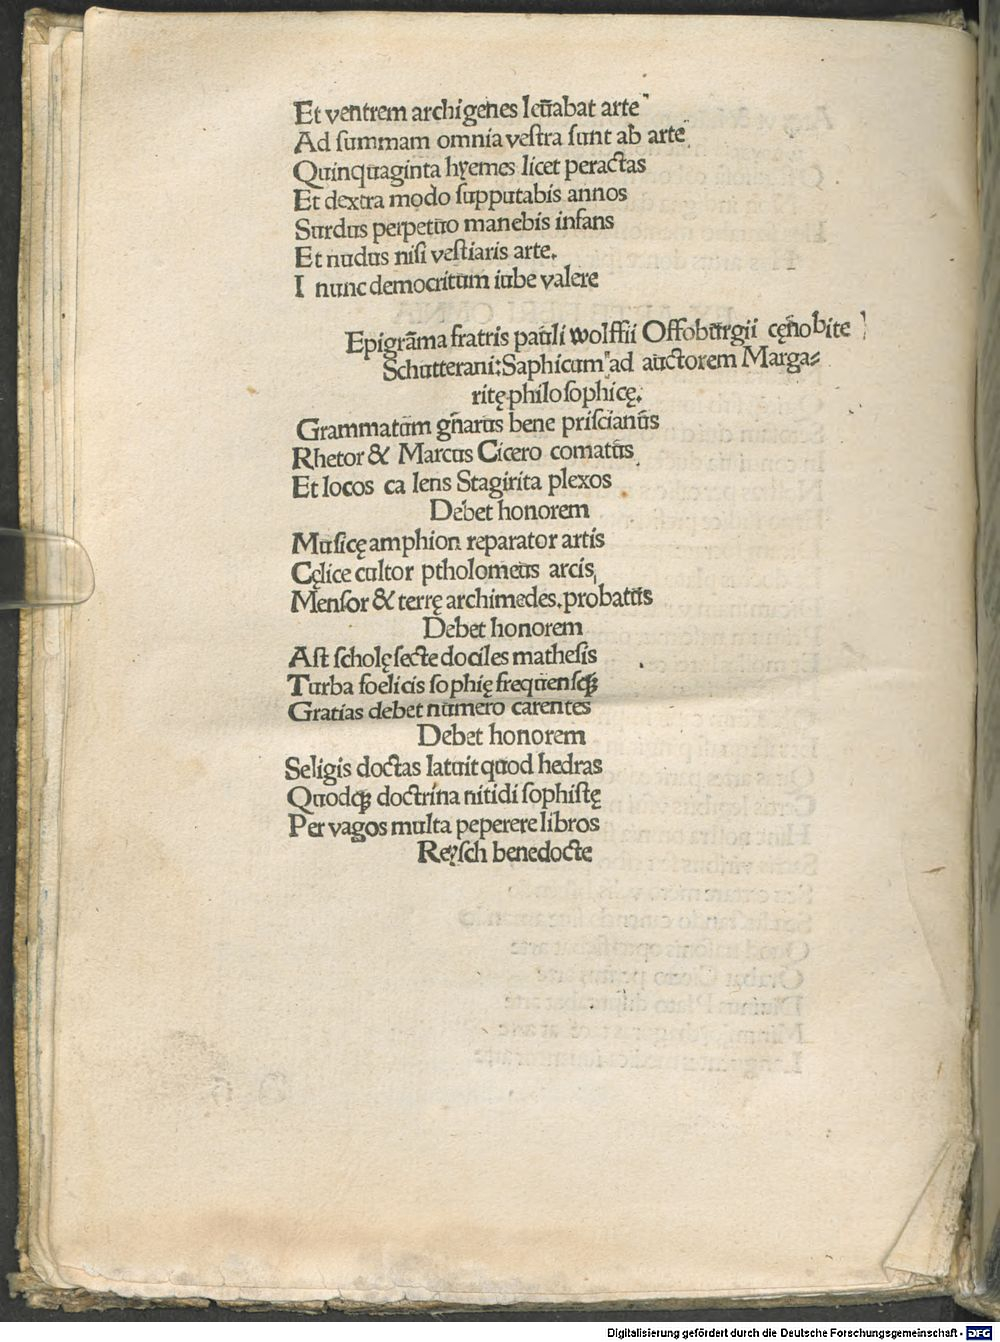 Et ventrem archigenes leūabat arte
Ad ſummam omnia veſtra ſunt ab arte
Quinquaginta hyemes licet peractas
Et dextra modo ſupputabis annos
Surdus perpetuo manebis infans
Et nudus niſi veſtiaris arte.
I nunc democritum iube valere
Epigrāma fratris pauli wolffii Offoburgii cęnobite
Schutterani: Saphicum ad auctorem Marga⸗
ritę philoſophicę.
Grammatum gnarus bene priſcianus
Rhetor & Marcus Cicero comatus
Et locos ca lens Stagirita plexos
Debet honorem
Muſicę amphion reparator artis
Cęlice cultor ptholomeus arcis
Menſor & terrę archimedes. probatus
Debet honorem
Aſt ſcholę ſecte dociles matheſis
Turba foelicis ſophię frequenſqꝫ
Gratias debet numero carentes
Debet honorem
Seligis doctas latuit quod hedras
Quodqꝫ doctrina nitidi ſophiſtę
Per vagos multa peperere libros
Reyſch benedocte
Digitalisierung gefördert durch die Deutsche Forschungsgemeinschaft - DFG